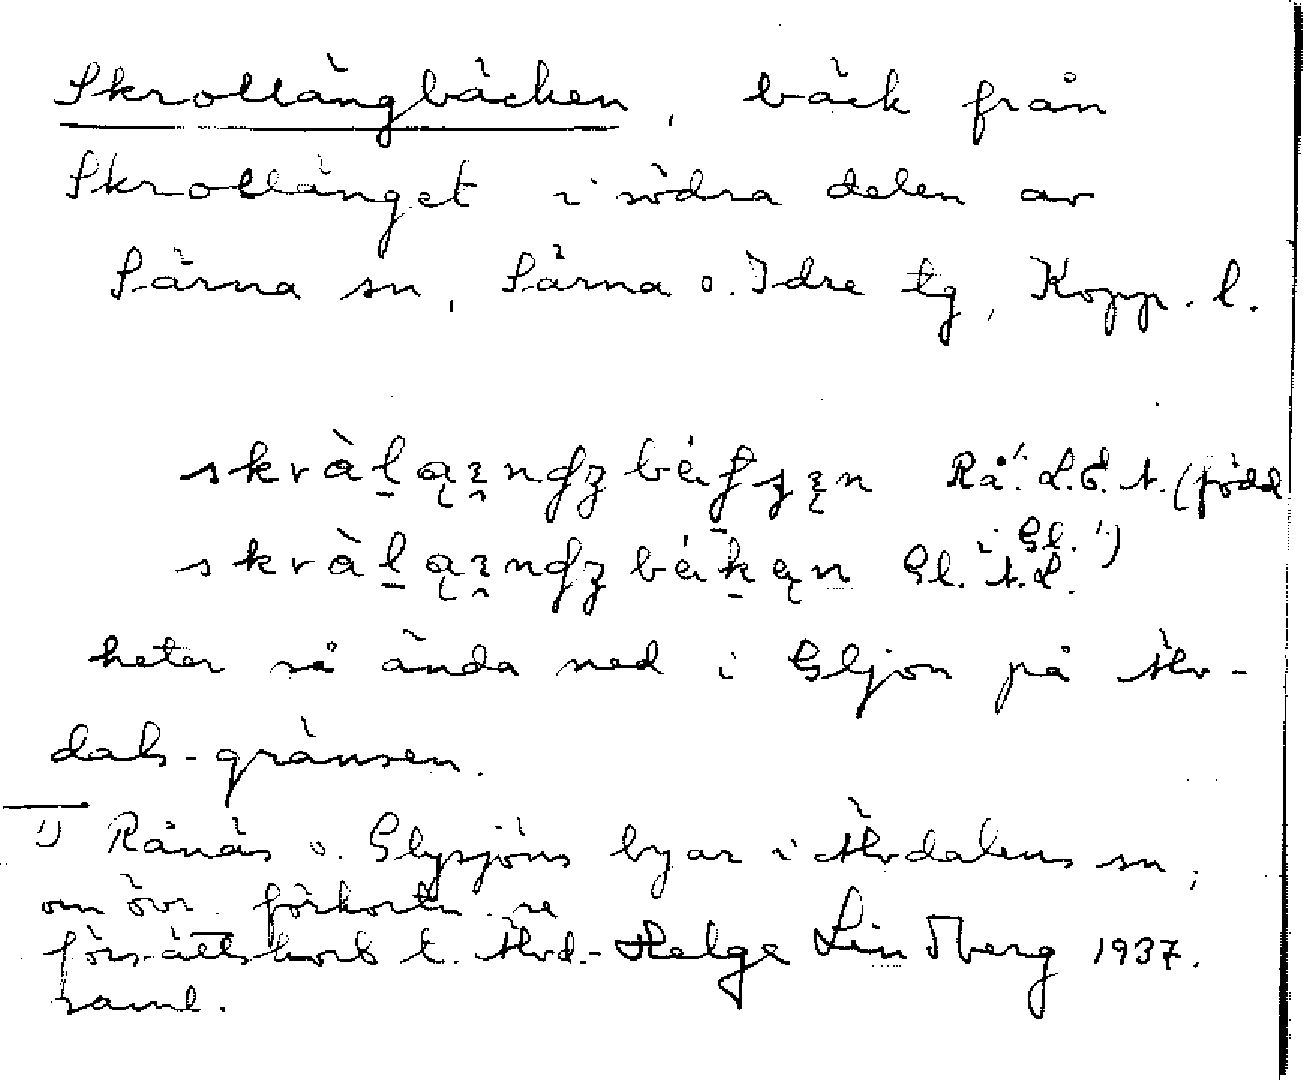 Skrollängbäcken, bäck från
Skrollänget i södra delen av
Särna sn, Särna o. Idre tg, Kopp. l.
Rå. L.E. Ä. (född
i Gl. ¹)
Gl. Ä.L.
heter så ända ned i Gljon på Älv-
dals-gränsen.
¹) Rånäs o. Glysjöns byar i Älvdalens sn,
om övr. förkortn. se
försättskort t. Älvd.- Helge Lindberg 1937.
saml.